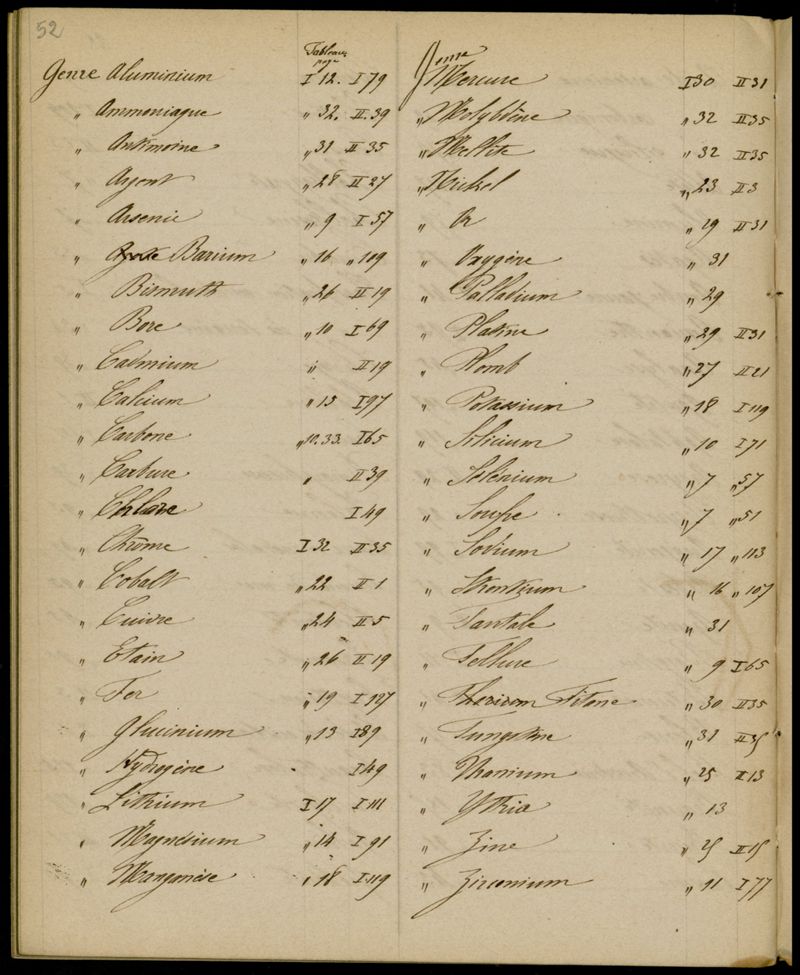 52
Tableau
page
Genre Aluminium I 12. I 79
" Ammoniaque " 32. II. 39
" Antimoine " 31 II 35
" Argent " 28 II 27
" Arsenic " 9 I 57
" Barium " 16 " 109
" Bismuth " 26 II 19
" Bore " 10 I 69
" Cadmium " II 19
" Calcium " 15 I 97
" Carbone " 10. 33. I 65
" Carbure " II 39
" Chlore I 49
" Chrôme I 32 II 35
" Cobalt " 22 II 1
" Cuivre " 24 II 5
" Etain " 26 II 19
" Fer " 19 I 127
" Glucinium " 13 I 89
" Hydrogène I 49
" Lithium I 17 I 111
" Magnésium " 14 I 91
" Manganèse " 18 I 119
Genre
Mercure I 30 II 31
" Molybdène " 32 II 35
" Mellite " 32 II 35
" Nickel " 23 II 3
" Or " 29 II 31
" Oxygène " 31
" Palladium " 29
" Platine " 29 II 31
" Plomb " 27 II 21
" Potassium " 18 I 119
" Silicium " 10 I 71
" Sélénium " 7 " 57
" Soufre " 7 " 51
" Sodium " 17 " 113
" Strontium " 16 " 107
" Tantale " 31
" Tellure " 9 I 65
" Titane " 30 II 35
" Tungstène " 31 II 35
" Uranium " 25 II 13
" Yttria " 13
" Zinc " 25 II 15
" Zirconium " 11 I 77